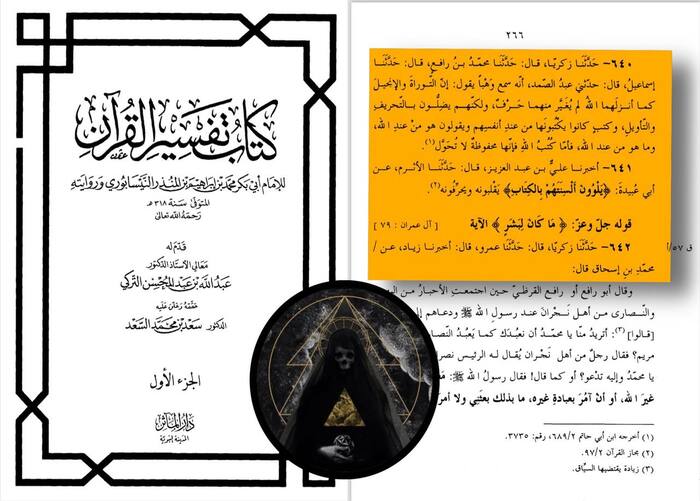 كتاب تفسير القرآن
للإمام أبي بكر محمد بن إبراهيم بن المنذر النيسابوري وروايته
المتوفى سنة ٣١٨ هـ
رحمه الله تعالى
قدم له
معالي الأستاذ الدكتور
عبد الله بن عبد المحسن التركي
حققه وعلق عليه
الدكتور سعد بن محمد السعد
الجزء الأول
دار المآثر
المدينة النبوية
٢٦٦
٦٤٠- حَدَّثَنَا زكريّا، قال: حَدَّثَنَا محمّد بنُ رافعٍ، قال: حَدَّثَنَا
إسماعيلُ، قال: حدّثني عبدُ الصّمد، أنّه سمع وَهْباً يقول: إنّ التّوراةَ والإنجيلَ
كما أنزلَهما اللهُ لم يُغَيَّر منهما حَرْفٌ، ولكنّهم يضلُّون بالتّحريفِ
والتّأويلِ، وكتبٍ كانوا يكتُبُونَها من عندِ أنفسِهم ويقولون هو من عندِ الله،
وما هو من عندِ الله، فأمّا كُتُبُ اللهِ فإنّها محفوظةٌ لا تُحَوَّل(١).
٦٤١- أخبرنا عليُّ بن عبد العزيز، قال: حَدَّثَنَا الأثرم، عن
أبي عُبيدة: ﴿يَلْوُونَ أَلْسِنَتَهُمْ بِالكِتَابِ﴾ يَقْلبونه ويحرِّفُونه(٢).
قوله جلّ وعزّ: ﴿ مَا كَانَ لِبَشَرٍ ﴾ الآية [ آل عمران : ٧٩ ]
٦٤٢- حَدَّثَنَا زكريّا، قال: حَدَّثَنَا عمرو، قال: أخبرنا زياد، عن / ق ٥٧/أ
محمّد بنِ إسحاق قال:
وقال أبو رافع أو رافع القرظيّ حين اجتمعتِ الأحبارُ من
والنّصارى من أهل نَجْرَانَ عند رسولِ الله ﷺ ودعاهم
[قالوا](٣): أتريدُ منّا يا محمّد أن نعبدَك كما يَعبدُ النّصارى
مريم؟ فقال رجلٌ من أهل نَجْران يُقال له الرئيس
يا محمّد وإليه تدعو؟ أو كما قال! فقال رسولُ الله ﷺ:
غيرَ الله، أو أنْ آمُرَ بعبادةِ غيرِه، ما بذلك بعثني ولا
(١) أخرجه ابن أبي حاتم ٦٨٩/٢، رقم: ٣٧٣٥.
(٢) مجاز القرآن ٩٧/٢.
(٣) زيادة يقتضيها السيّاق.